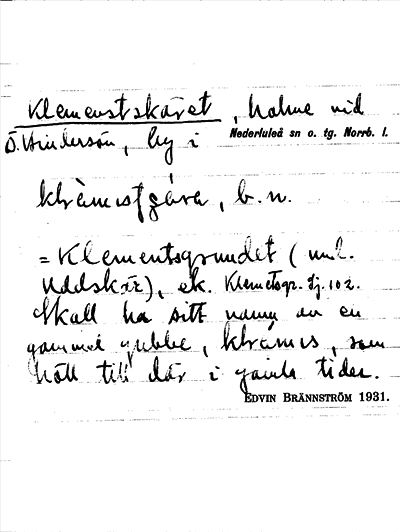 Klemenstskäret, holme vid
Ö. Hindersön, by i Nederluleå sn o. tg. Norrb. l.
b. n.
= Klementsgrundet (
Uddskär), ek. Klemetsgr. Sj. 102.
Skall ha sitt namn av en
gammal gubbe, som
höll till där i gamla tider.
EDVIN BRÄNNSTRÖM 1931.